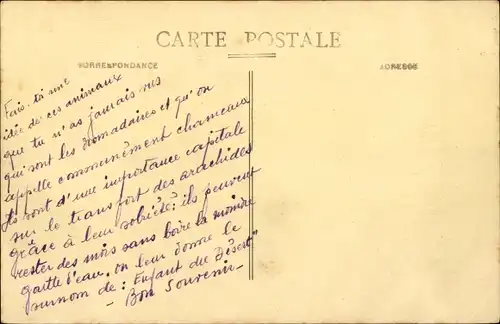 CARTE POSTALE
CORRESPONDANCE
ADRESSE
Fais-toi une
idée de ces animaux
que tu n'as jamais vus
qui sont les dromadaires et qu'on
appelle communément chameaux
Ils sont d'une importance capitale
sur le transport des arachides
grâce à leur sobriété: ils peuvent
rester des mois sans boire la moindre
goutte d'eau. on leur donne le
surnom de: Enfant du Désert"
- Bon Souvenir -